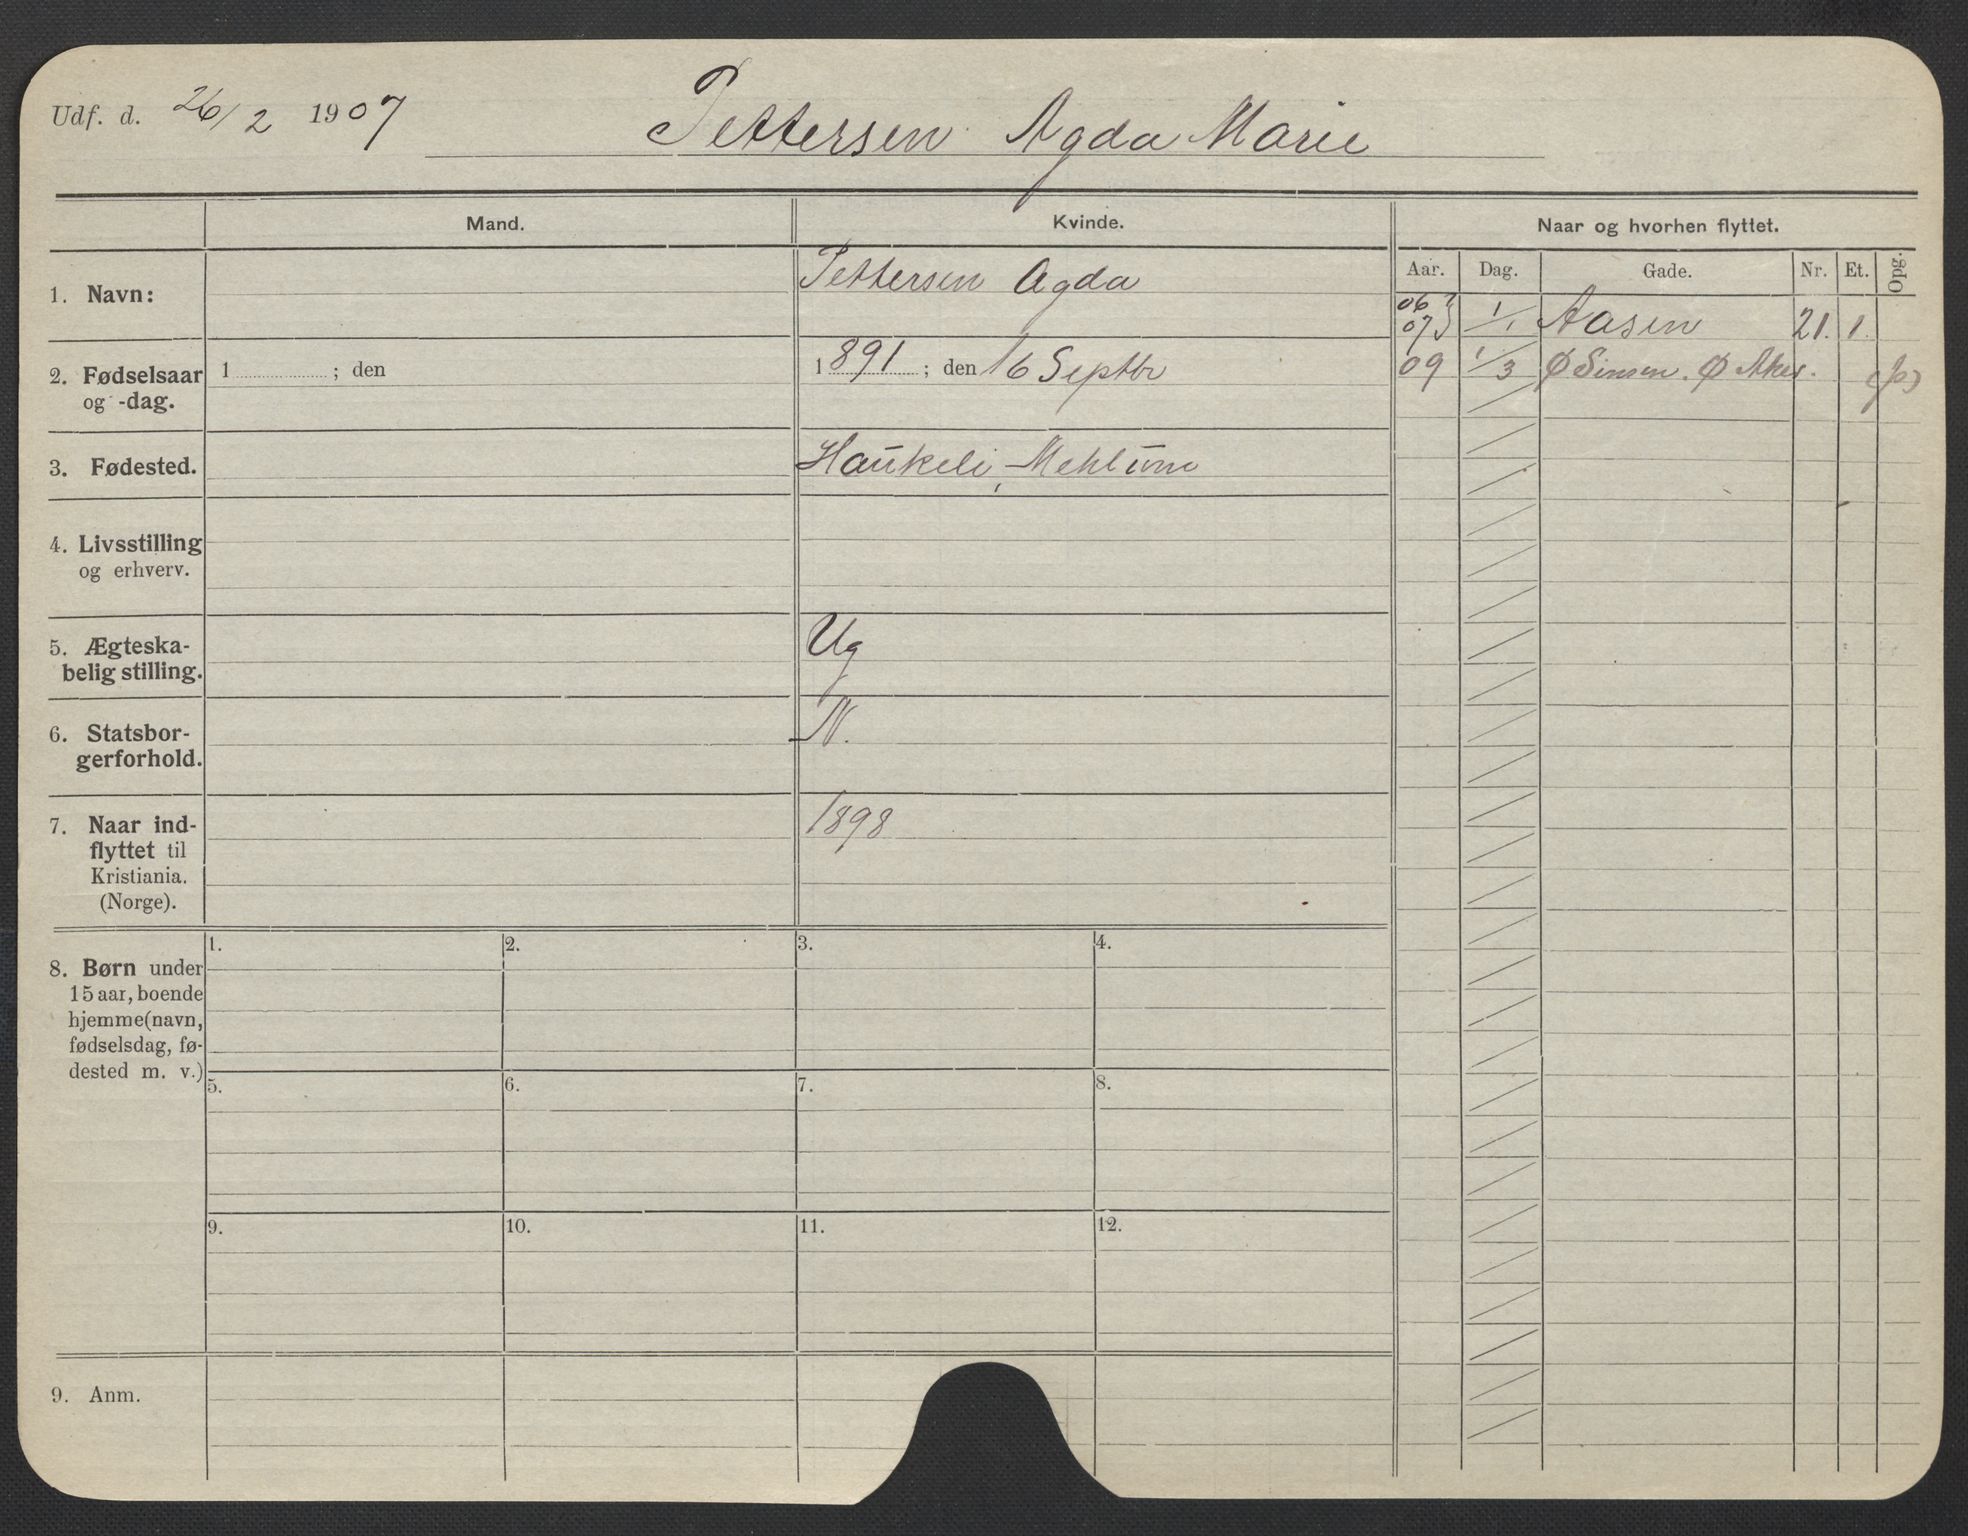 Udf. d. 26/2 1907
Pettersen Agda Marie
Mand.
Kvinde.
Naar og hvorhen flyttet.
Aar. Dag. Gade. Nr. Et. Opg.
1. Navn:
Pettersen Agda
06
07 1/1 Aasen 21. 1.
09 1/3 Ø Sinsen. Ø Aker.
2. Fødselsaar
og -dag.
1 ; den
1891 ; den 16 Septbr
3. Fødested.
Haukeli, Mehlum
4. Livsstilling
og erhverv.
5. Ægteska-
belig stilling.
Ug
6. Statsbor-
gerforhold.
N.
7. Naar ind-
flyttet til
Kristiania.
(Norge).
1898
8. Børn under
15 aar, boende
hjemme (navn,
fødselsdag, fø-
dested m. v.)
1. 2. 3. 4.
5. 6. 7. 8.
9. 10. 11. 12.
9. Anm.